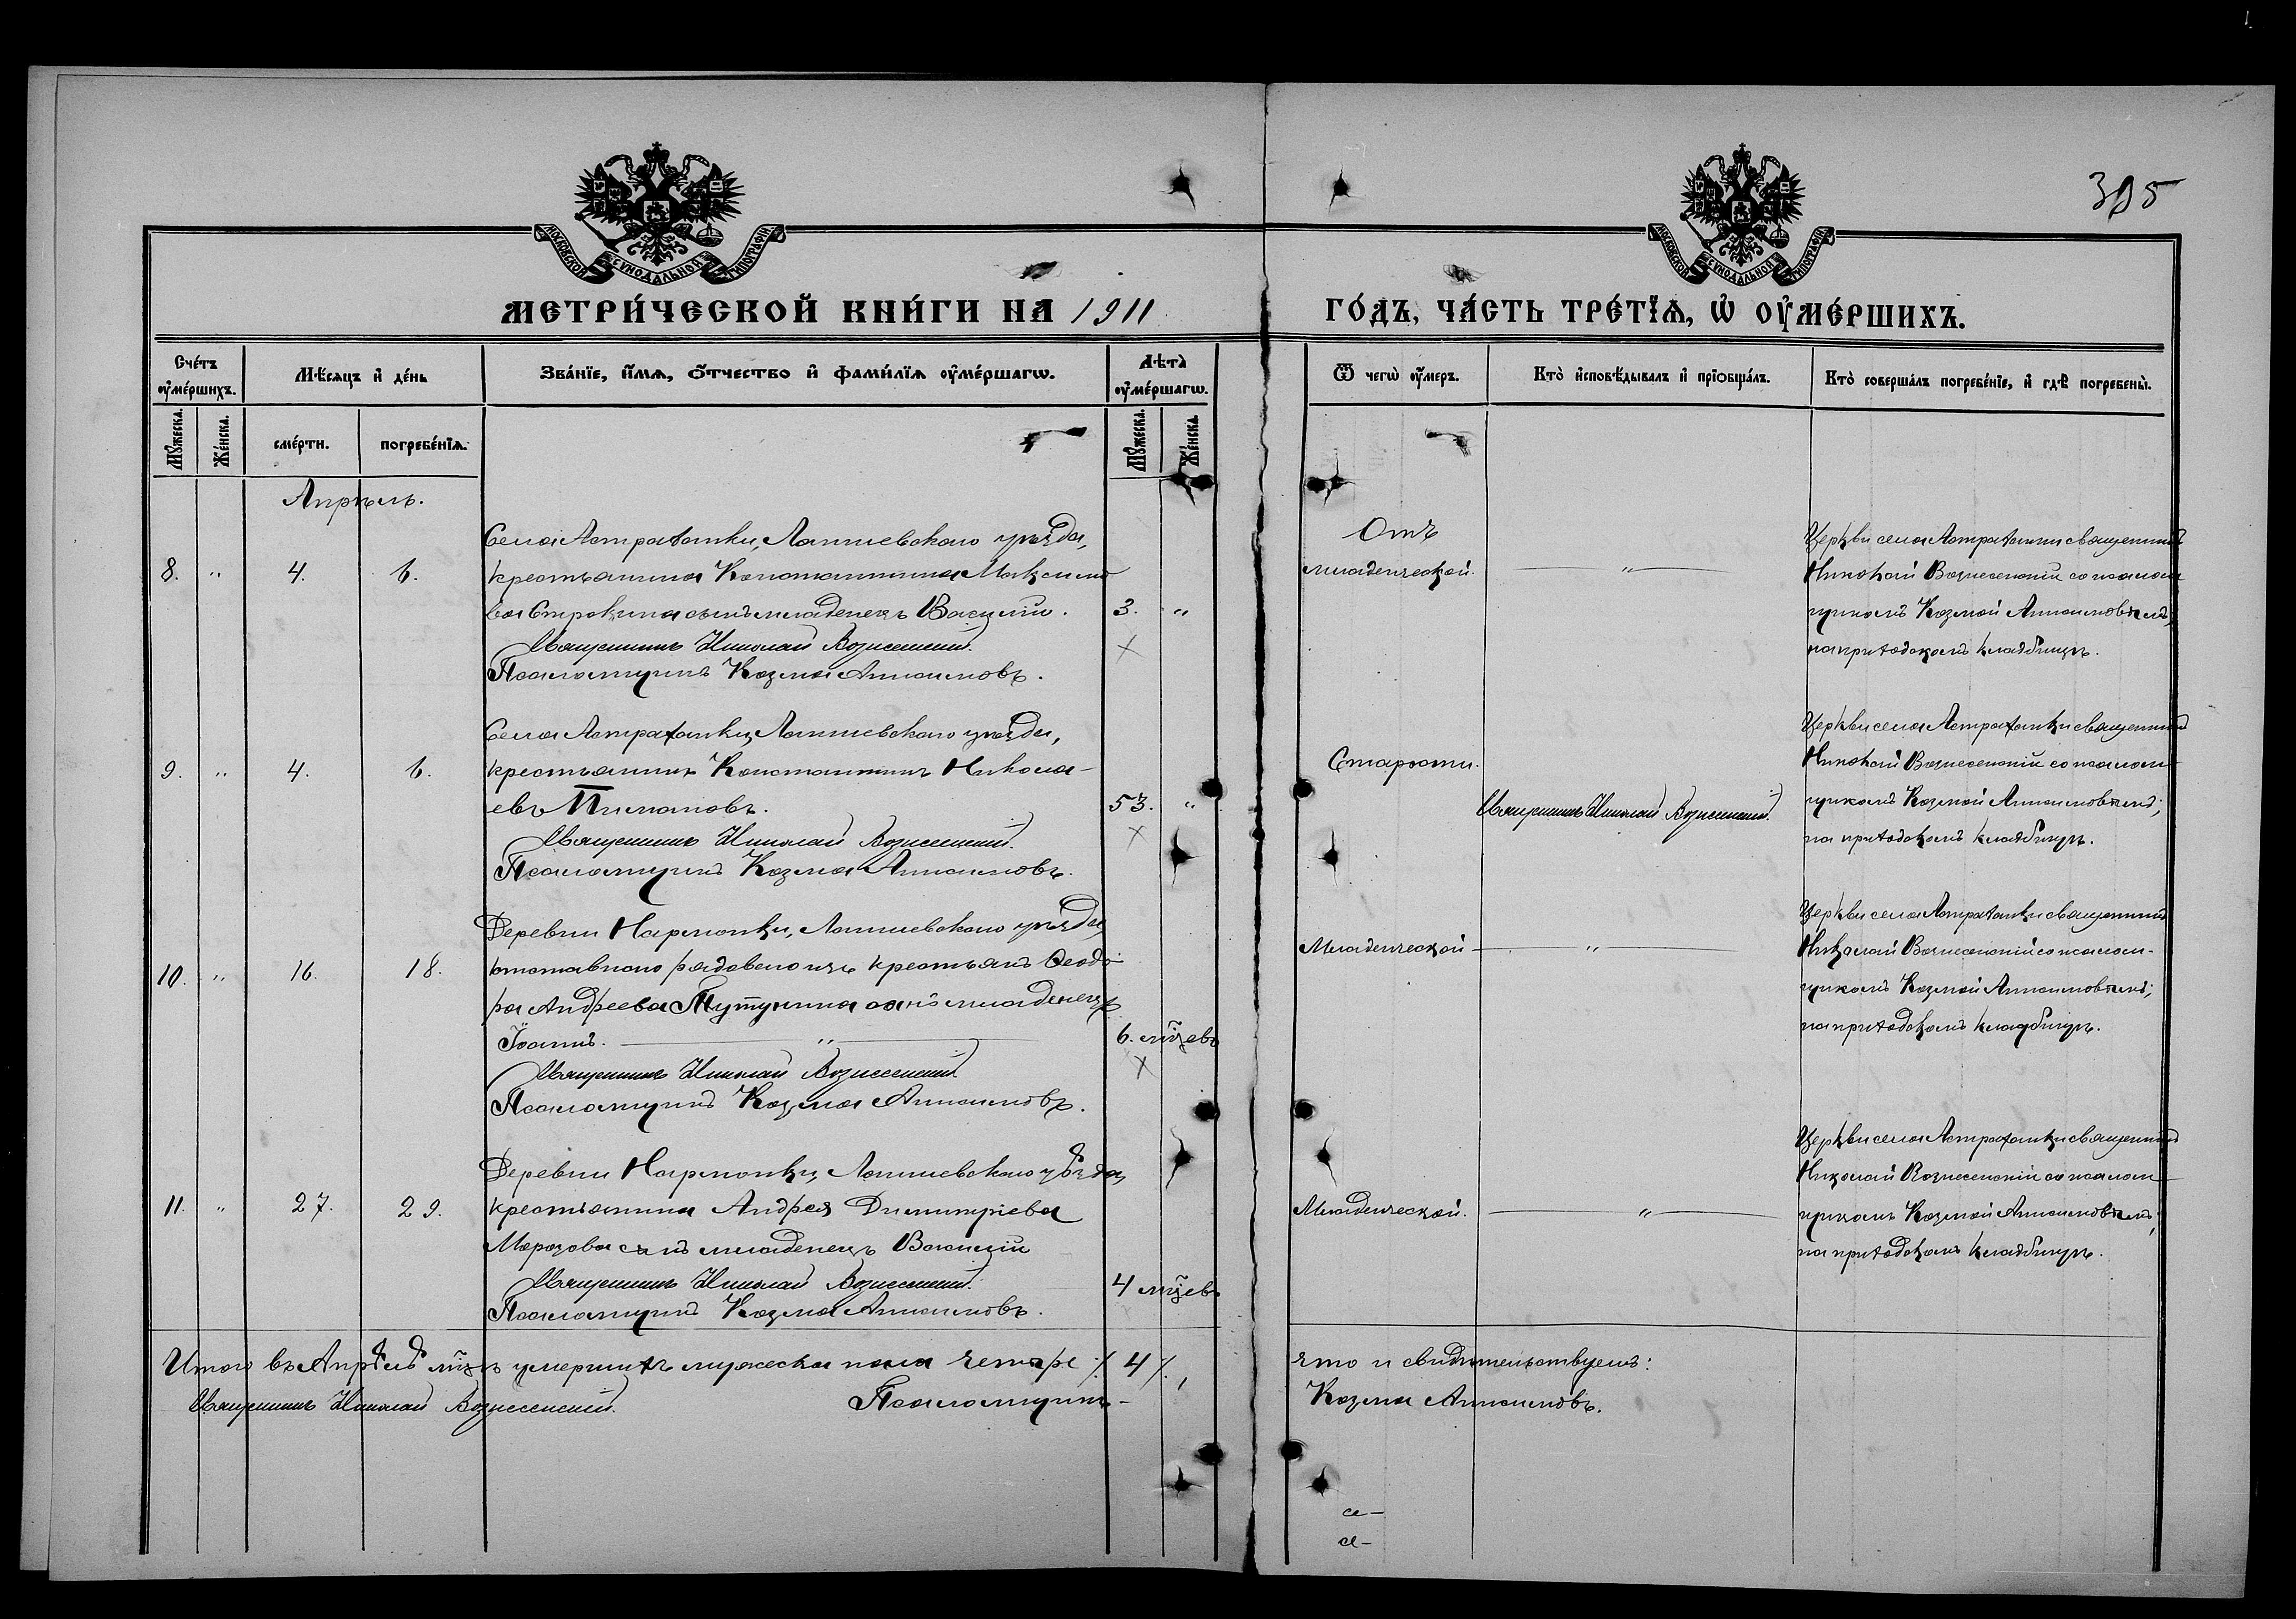 395
МОСКОВСКОЙ СѴНОДАЛЬНОЙ ТИПОГРАФІИ
МОСКОВСКОЙ СѴНОДАЛЬНОЙ ТИПОГРАФІИ
МЕТРИ́ЧЕСКОЙ КНИ́ГИ НА 1911 ГО́ДЪ, ЧА́СТЬ ТРЕ́ТЇѦ, Ѡ҆ ОУ҆МЕ́РШИХЪ.
Сче́тъ оу҆ме́ршихъ.
Мꙋ́жеска.
Же́нска.
Мѣ́сяцъ и҆ де́нь
сме́рти.
погребе́нїѧ.
Зва́нїе, и҆́мѧ, ѻ҆́тчество и҆ фами́лїѧ оу҆ме́ршагѡ.
Лѣта̀ оу҆ме́ршагѡ.
Мꙋ́жеска.
Же́нска.
Ѿ чегѡ̀ оу҆́меръ.
Кто̀ и҆сповѣ́дывалъ и҆ прїѻбща́лъ.
Кто̀ соверша́лъ погребе́нїе, и҆ гдѣ̀ погребены̀.
Апрѣль.
Села Астраханки, Лаишевскаго уѣзда,
8. „ 4. 6. крестьянина Константина Максимо
ва Строкина сынъ младенецъ Василій. 3. „
Священникъ Николай Вознесенскій
Псаломщикъ Козма Анисимовъ.
Отъ
младенческой. „
Церкви села Астраханки священникъ
Николай Вознесенскій со псалом
щикомъ Козмой Анисимовымъ,
на приходскомъ кладбищѣ.
Села Астраханки, Лаишевскаго уѣзда,
9. „ 4. 6. крестьянинъ Константинъ Никола-
евъ Пимановъ. 53. „
Священникъ Николай Вознесенскій.
Псаломщикъ Козма Анисимовъ.
Старости.
Священникъ Николай Вознесенскій.
Церкви села Астраханки священникъ
Николай Вознесенскій со псалом-
щикомъ Козмой Анисимовымъ,
на приходскомъ кладбищѣ.
Деревни Нармонки, Лаишевскаго уѣзда,
10. „ 16. 18. отставного рядового изъ крестьянъ Ѳеодо-
ра Андреева Тутунина сынъ младенецъ
Іоаннъ. „ 6. мц҃евъ
Священникъ Николай Вознесенскій
Псаломщикъ Козма Анисимовъ.
Младенческой „
Церкви села Астраханки священникъ
Николай Вознесенскій со псалом-
щикомъ Козмой Анисимовымъ,
на приходскомъ кладбищѣ.
Деревни Нармонки, Лаишевскаго уѣзда,
11. „ 27. 29. крестьянина Андрея Димитріева
Морозова сынъ младенецъ Василій
Священникъ Николай Вознесенскій. 4 мц҃евъ
Псаломщикъ Козма Анисимовъ.
Младенческой. „
Церкви села Астраханки священникъ
Николай Вознесенскій со псалом-
щикомъ Козмой Анисимовымъ,
на приходскомъ кладбищѣ.
Итого въ Апрѣлѣ мц҃ѣ умершихъ мужеска пола четыре /4/, что и свидѣтельствуемъ:
Священникъ Николай Вознесенскій. Псаломщикъ - Козма Анисимовъ.